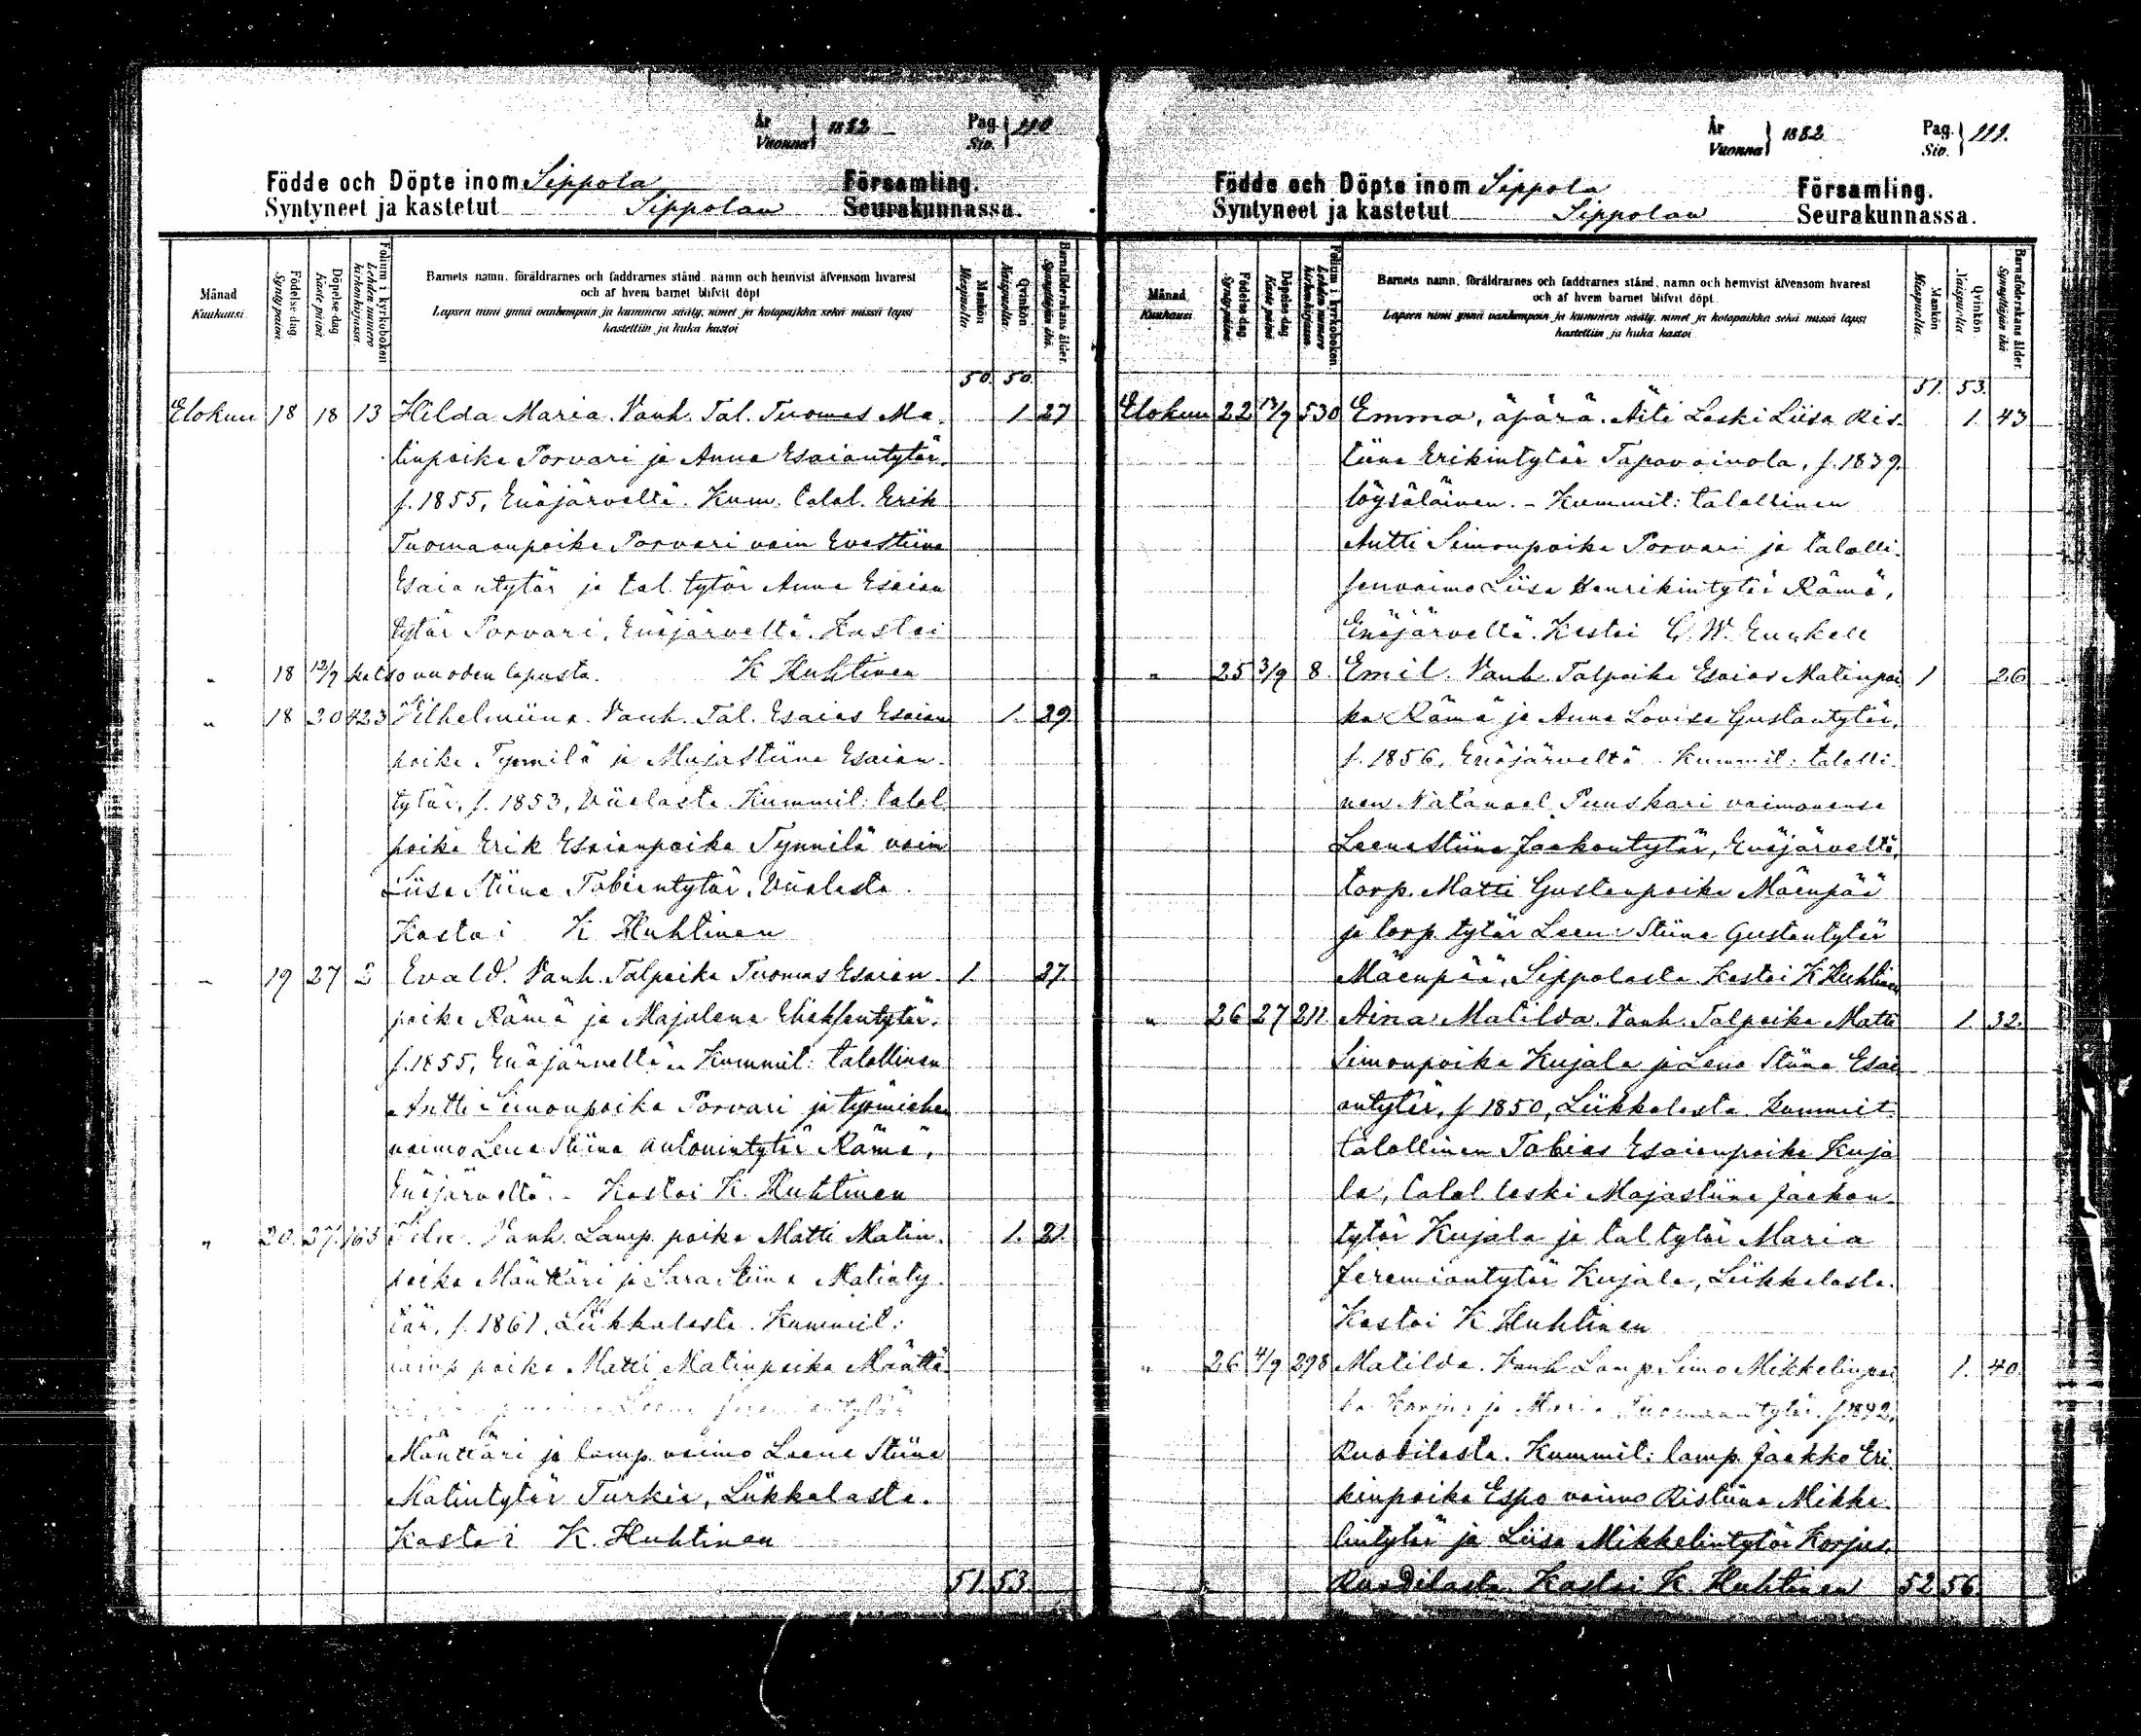 År
Vuonna } 1882
Pag.
Siv. } 110
Födde och Döpte inom Sippola Församling.
Syntyneet ja kastetut Sippolan Seurakunnassa.
Månad
Kuukausi
Födelse-dag.
Syntypäivä.
Döpelse-dag
Kaste päivä
Folium i kyrkoboken
Lehden numero kirkonkirjassa.
Barnets namn, föräldrarnes och faddrarnes stånd, namn och hemvist äfvensom hvarest
och af hvem barnet blifvit döpt
Lapsen nimi ynnä vanhempain ja kummein sääty, nimet ja kotopaikka sekä missä lapsi
kastettiin ja kuka kastoi
Mankön
Miespuolta.
Qvinkön
Naispuolta.
Barnaföderskans ålder.
Synnyttäjän ikä.
50. 50.
Elokuu 18 18 13 Hilda Maria. Vanh. Tal. Tuomas Ma- 1. 27
tinpoika Porvari ja Anna Esaiantytär.
f. 1855, Enäjärveltä. Kum. talol. Erik
Tuomaanpoika Porvari vaim Evastiina
Esaiantytär ja tal. tytär Anna Esaian
tytär Porvari, Enäjärveltä. Kastoi
" 18 12/9 katso vuoden lopusta. K Huhtinen
" 18 20 423 Vilhelmiina. Vanh. Tal. Esaias Esaian 1. 29.
poika Tynnilä ja Majastiina Esaian-
tytär, f. 1853, Viialasta. Kummit: talol.
poika Erik Esaianpoika Tynnilä vaim
Liisa Stiina Tobiantytär, Viialasta.
Kastoi K Huhtinen
" 19 27 2 Evald. Vanh. Talpoika Tuomas Esaian- 1. 27.
poika Rämä ja Majalena
f. 1855, Enäjärveltä. Kummit: talollinen
Antti Simonpoika Porvari ja työmiehen
vaimo Lena Stiina Antonintytär Rämä,
Enäjärveltä. - Kastoi K. Huhtinen
" 20. 27. 163 Vanh. Lamp. poika Matti Matin- 1. 21.
poika Mänttäri ja Sara Stiina Matinty-
tär, f. 1861, Liikkalasta. Kummit:
lamp poika Matti Matinpoika Mänttä-
Mänttäri ja lamp. vaimo Leena Stiina
Matintytär Turkia, Liikkalasta.
Kastoi K. Huhtinen
51. 53.
År
Vuonna } 1882
Pag.
Siv. } 111.
Födde och Döpte inom Sippola Församling.
Syntyneet ja kastetut Sippolan Seurakunnassa.
Månad
Kuukausi
Födelse-dag.
Syntypäivä.
Döpelse-dag
Kaste päivä
Folium i kyrkoboken
Lehden numero kirkonkirjassa.
Barnets namn, föräldrarnes och faddrarnes stånd, namn och hemvist äfvensom hvarest
och af hvem barnet blifvit döpt.
Lapsen nimi ynnä vanhempain ja kummein sääty, nimet ja kotopaikka sekä missä lapsi
kastettiin ja kuka kastoi
Mankön
Miespuolta.
Qvinkön
Naispuolta.
Barnaföderskans ålder.
Synnyttäjän ikä
51. 53.
Elokuu 22 17/9 530 Emma, äpärä. Äiti Leski Liisa Ris- 1. 43
tiina Erikintytär Tapavainola, f. 1839.
löysäläinen. - Kummit: talollinen
Antti Simonpoika Porvari ja talolli-
senvaimo Liisa Henrikintytär Rämä,
Enäjärveltä. Kastoi W. Eunkell
" 25 3/9 8. Emil. Vanh. Talpoika Esaias Matinpoi 1 26
ka Rämä ja Anna Lovisa Gustantytär,
f. 1856, Enäjärveltä. Kummit: talolli-
nen Natanael Puuskari vaimonensa
Leenastiina Jaakontytär, Enäjärveltä,
torp. Matti Gustanpoika Mäenpää
ja torp. tytär Leena Stiina Gustantytär
Mäenpää, Sippolasta. Kastoi K Huhtinen
" 26 27 211. Aina Matilda. Vanh. Talpoika Matti 1. 32.
Simonpoika Kujala ja Lena Stiina Esai
antytär, f 1850, Liikkalasta. Kummit:
talollinen Tobias Esaianpoika Kuja
la, talol leski Majastiina Jaakon-
tytär Kujala ja tal. tytär Maria
Jeremiantytär Kujala, Liikkalasta.
Kastoi K Huhtinen
" 26 4/9 298 Matilda. Vanh Lamp Simo Mikkelinpoi 1. 40.
ka Korjus ja Maria Tuomaantytär f. 1842,
Ruotilasta. Kummit: lamp. Jaakko Eri-
kinpoika Espo vaimo Ristiina Mikke-
lintytär ja Liisa Mikkelintytär Korjus.
Ruotilasta. Kastoi K. Huhtinen 52 56